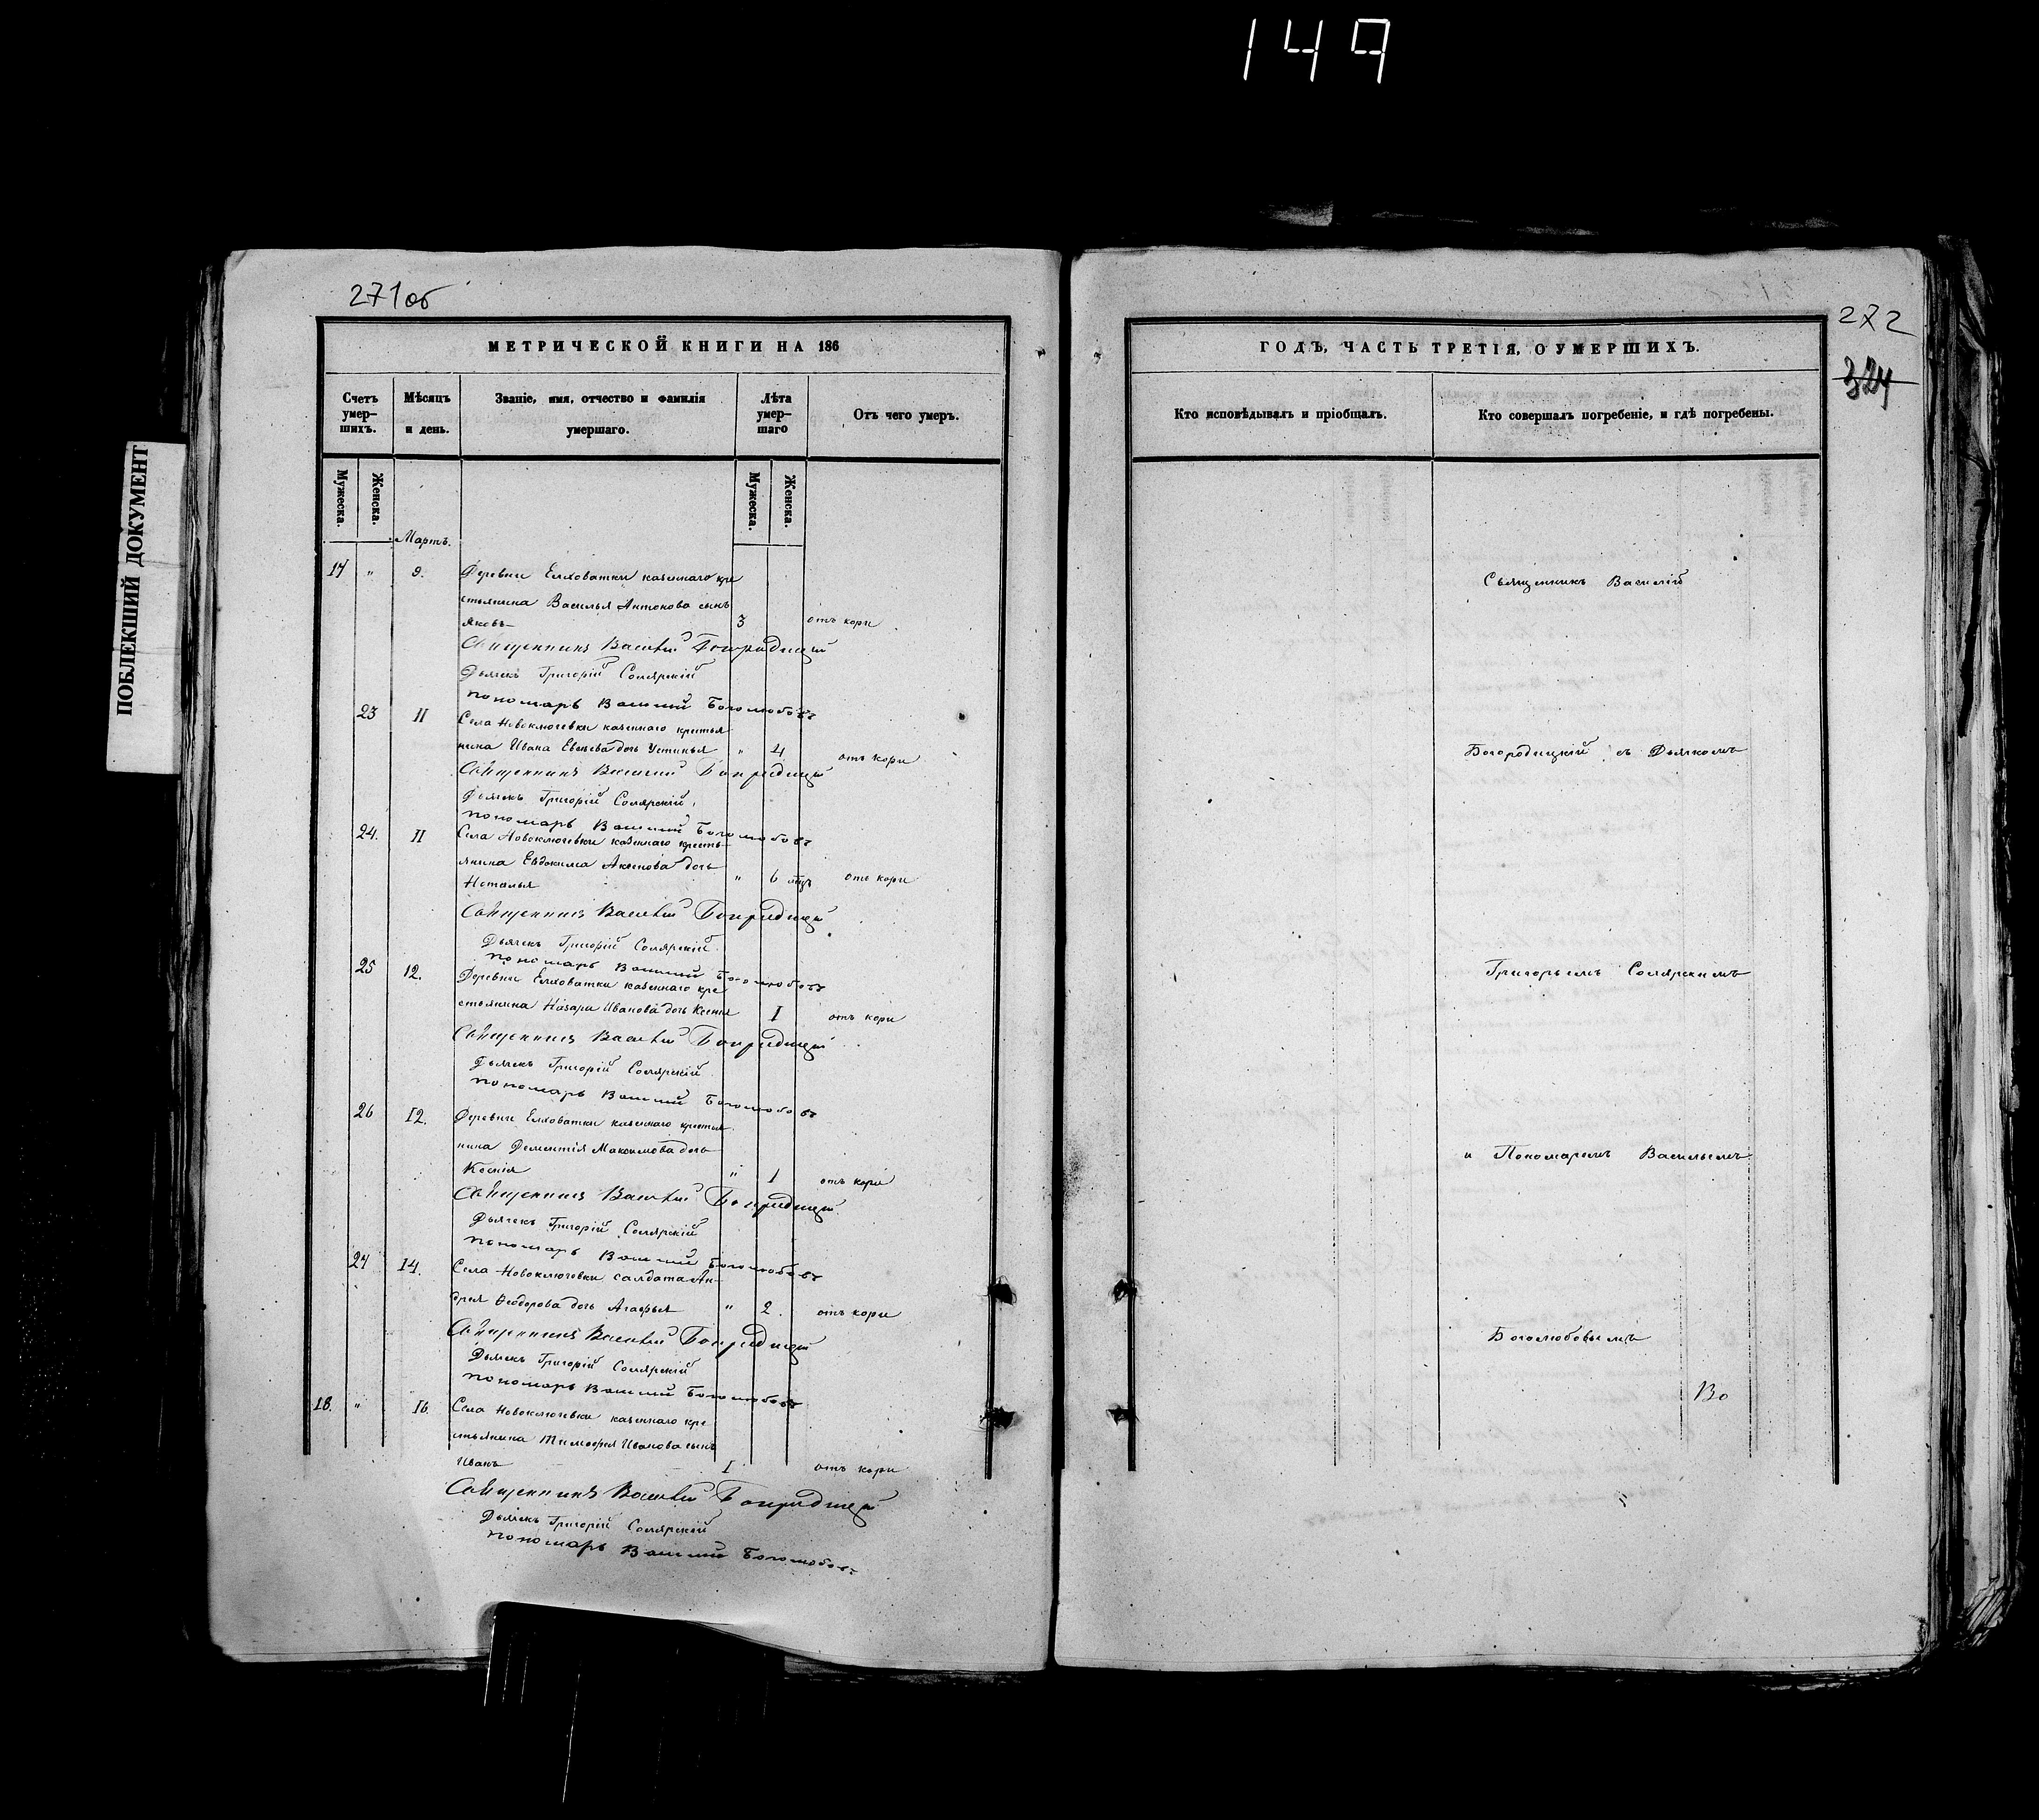 149
271об
МЕТРИЧЕСКОЙ КНИГИ НА 186
Счетъ умер-шихъ.
Мѣсяцъ и день.
Званіе, имя, отчество и фамилія умершаго.
Лѣта умер-шаго
Отъ чего умеръ.
Мужеска.
Женска.
Мужеска.
Женска.
Мартъ.
17 " 9. Деревни Елховатки казеннаго кре
стьянина Василья Антонова сынъ
Яковъ 3 отъ кори
Священникъ Василій Богородицкій
Дьячекъ Григорій Солярскій
Пономарь Василий Боголюбовъ
23 11 Села Новоключевки казеннаго крестья
нина Ивана Евсѣева дочь Устинья " 4 отъ кори
Священникъ Василий Богородицкій
Дьячекъ Григорій Солярскій
Пономарь Василий Боголюбовъ
24. 11 Села Новоключевки казеннаго кресть-
янина Евдокима Акимова дочь
Наталья " 6 мцъ отъ кори
Священникъ Василій Богородицкій
Дьячекъ Григорій Солярскій
Пономарь Василий Боголюбовъ
25 12. Деревни Елховатки казеннаго кре
стьянина Назара Иванова дочь Ксенія 1 отъ кори
Священникъ Василій Богородицкій
Дьячекъ Григорій Солярскій
Пономарь Василий Боголюбовъ
26 12. Деревни Елховатки казеннаго крестья
нина Дементія Максимова дочь
Ксенія " 1 отъ кори
Священникъ Василій Богородицкій
Дьячекъ Григорій Солярскій
Пономарь Василий Боголюбовъ
27 14. Села Новоключевки салдата Ан-
дрея Ѳеодорова дочь Агафья " 2. отъ кори
Священникъ Василій Богородицкій
Дьячекъ Григорій Солярскій
Пономарь Василий Боголюбовъ
18. " 16. Села Новоключевки казеннаго кре
стьянина Тимофея Иванова сынъ
Иванъ 1 отъ кори
Священникъ Василій Богородицкій
Дьячекъ Григорій Солярскій
Пономарь Василий Боголюбовъ
ПОБЛЕКШИЙ ДОКУМЕНТ
272
324
ГОДЪ, ЧАСТЬ ТРЕТІЯ, О УМЕРШИХЪ.
Кто исповѣдывалъ и пріобщалъ.
Кто совершалъ погребеніе, и гдѣ погребены.
Священникъ Василій
Богородицкій съ Дьячкомъ
Григорьемъ Солярскимъ
и Пономаремъ Васильемъ
Боголюбовымъ
Во